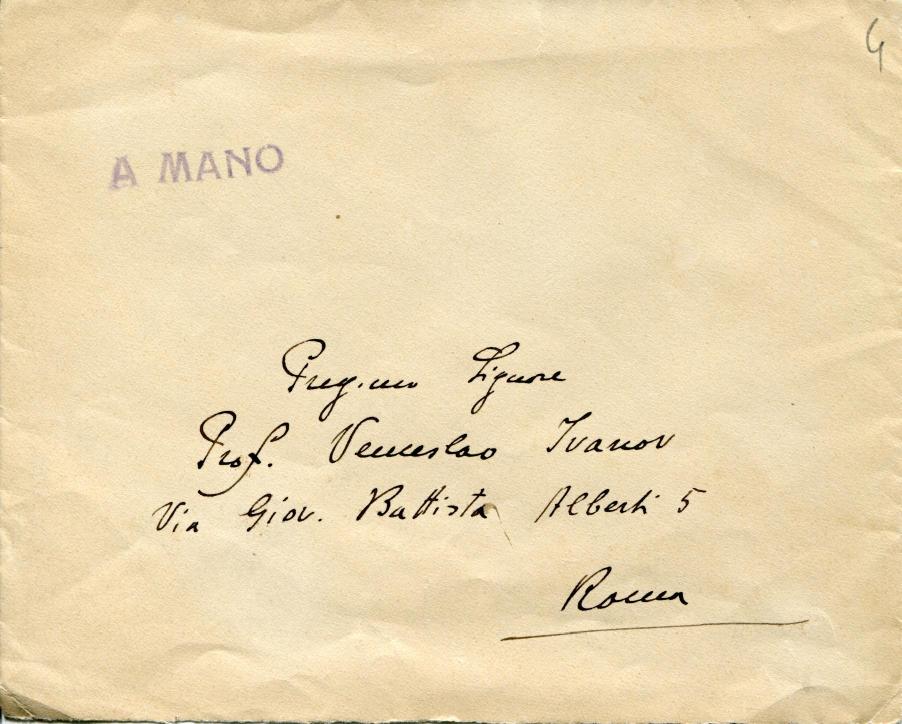 4
A MANO
Preg.mo Signore
Prof. Venceslao Ivanov
Via Giov. Battista Alberti 5
Roma